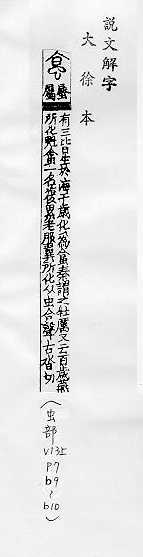 説文解字
大徐本
𧊧
蜃屬
有三皆生於海千歲化爲𧊧秦謂之牡厲又云百歲燕
所化魁𧊧一名復累老服翼所化从虫合聲古沓切
(虫部
V13上
P.7
b9
~
b10)